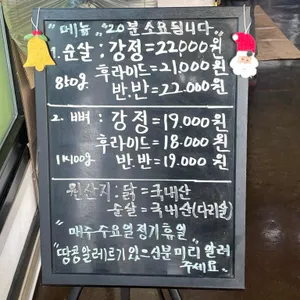 "메뉴" "20분 소요됩니다"
1. 순살 : 강정 = 22,000원
850g. 후라이드 = 21,000원
반.반 = 22.000원
2. 뼈 : 강정 = 19.000원
후라이드 = 18.000원
1100g. 반.반 = 19.000원
원산지 : 닭 = 국내산
순살 = 국내산(다리살)
"매주 수요일 정기휴일"
"땅콩알레르기 있으신분 미리 알려
주세요."